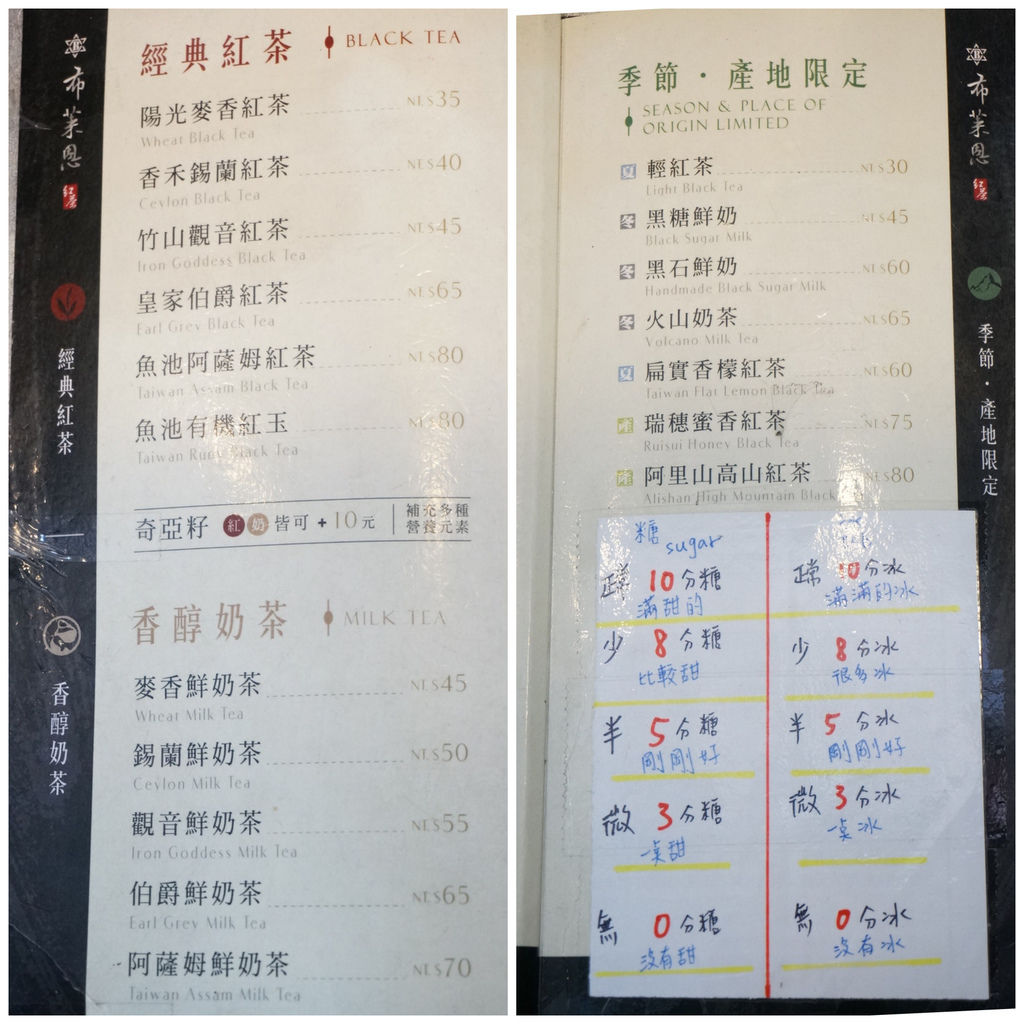 布萊恩
紅茶
經典紅茶
香醇奶茶
經典紅茶 BLACK TEA
陽光麥香紅茶 NT.$35
Wheat Black Tea
香禾錫蘭紅茶 NT.$40
Ceylon Black Tea
竹山觀音紅茶 NT.$45
Iron Goddess Black Tea
皇家伯爵紅茶 NT.$65
Earl Grey Black Tea
魚池阿薩姆紅茶 NT.$80
Taiwan Assam Black Tea
魚池有機紅玉 NT.$80
Taiwan Ruby Black Tea
奇亞籽 紅 奶 皆可 + 10元 補充多種
營養元素
香醇奶茶 MILK TEA
麥香鮮奶茶 NT.$45
Wheat Milk Tea
錫蘭鮮奶茶 NT.$50
Ceylon Milk Tea
觀音鮮奶茶 NT.$55
Iron Goddess Milk Tea
伯爵鮮奶茶 NT.$65
Earl Grey Milk Tea
阿薩姆鮮奶茶 NT.$70
Taiwan Assam Milk Tea
季節・產地限定
SEASON & PLACE OF
ORIGIN LIMITED
夏 輕紅茶 NT.$30
Light Black Tea
冬 黑糖鮮奶 NT.$45
Black Sugar Milk
冬 黑石鮮奶 NT.$60
Handmade Black Sugar Milk
冬 火山奶茶 NT.$65
Volcano Milk Tea
夏 扁實香檬紅茶 NT.$60
Taiwan Flat Lemon Black Tea
產 瑞穗蜜香紅茶 NT.$75
Ruisui Honey Black Tea
產 阿里山高山紅茶 NT.$80
Alishan High Mountain Black
糖
sugar
正常 10分糖
滿甜的
少 8分糖
比較甜
半 5分糖
剛剛好
微 3分糖
一點甜
無 0分糖
沒有甜
正常 10分冰
滿滿的冰
少 8分冰
很多冰
半 5分冰
剛剛好
微 3分冰
一點冰
無 0分冰
沒有冰
布萊恩
紅茶
季節・產地限定